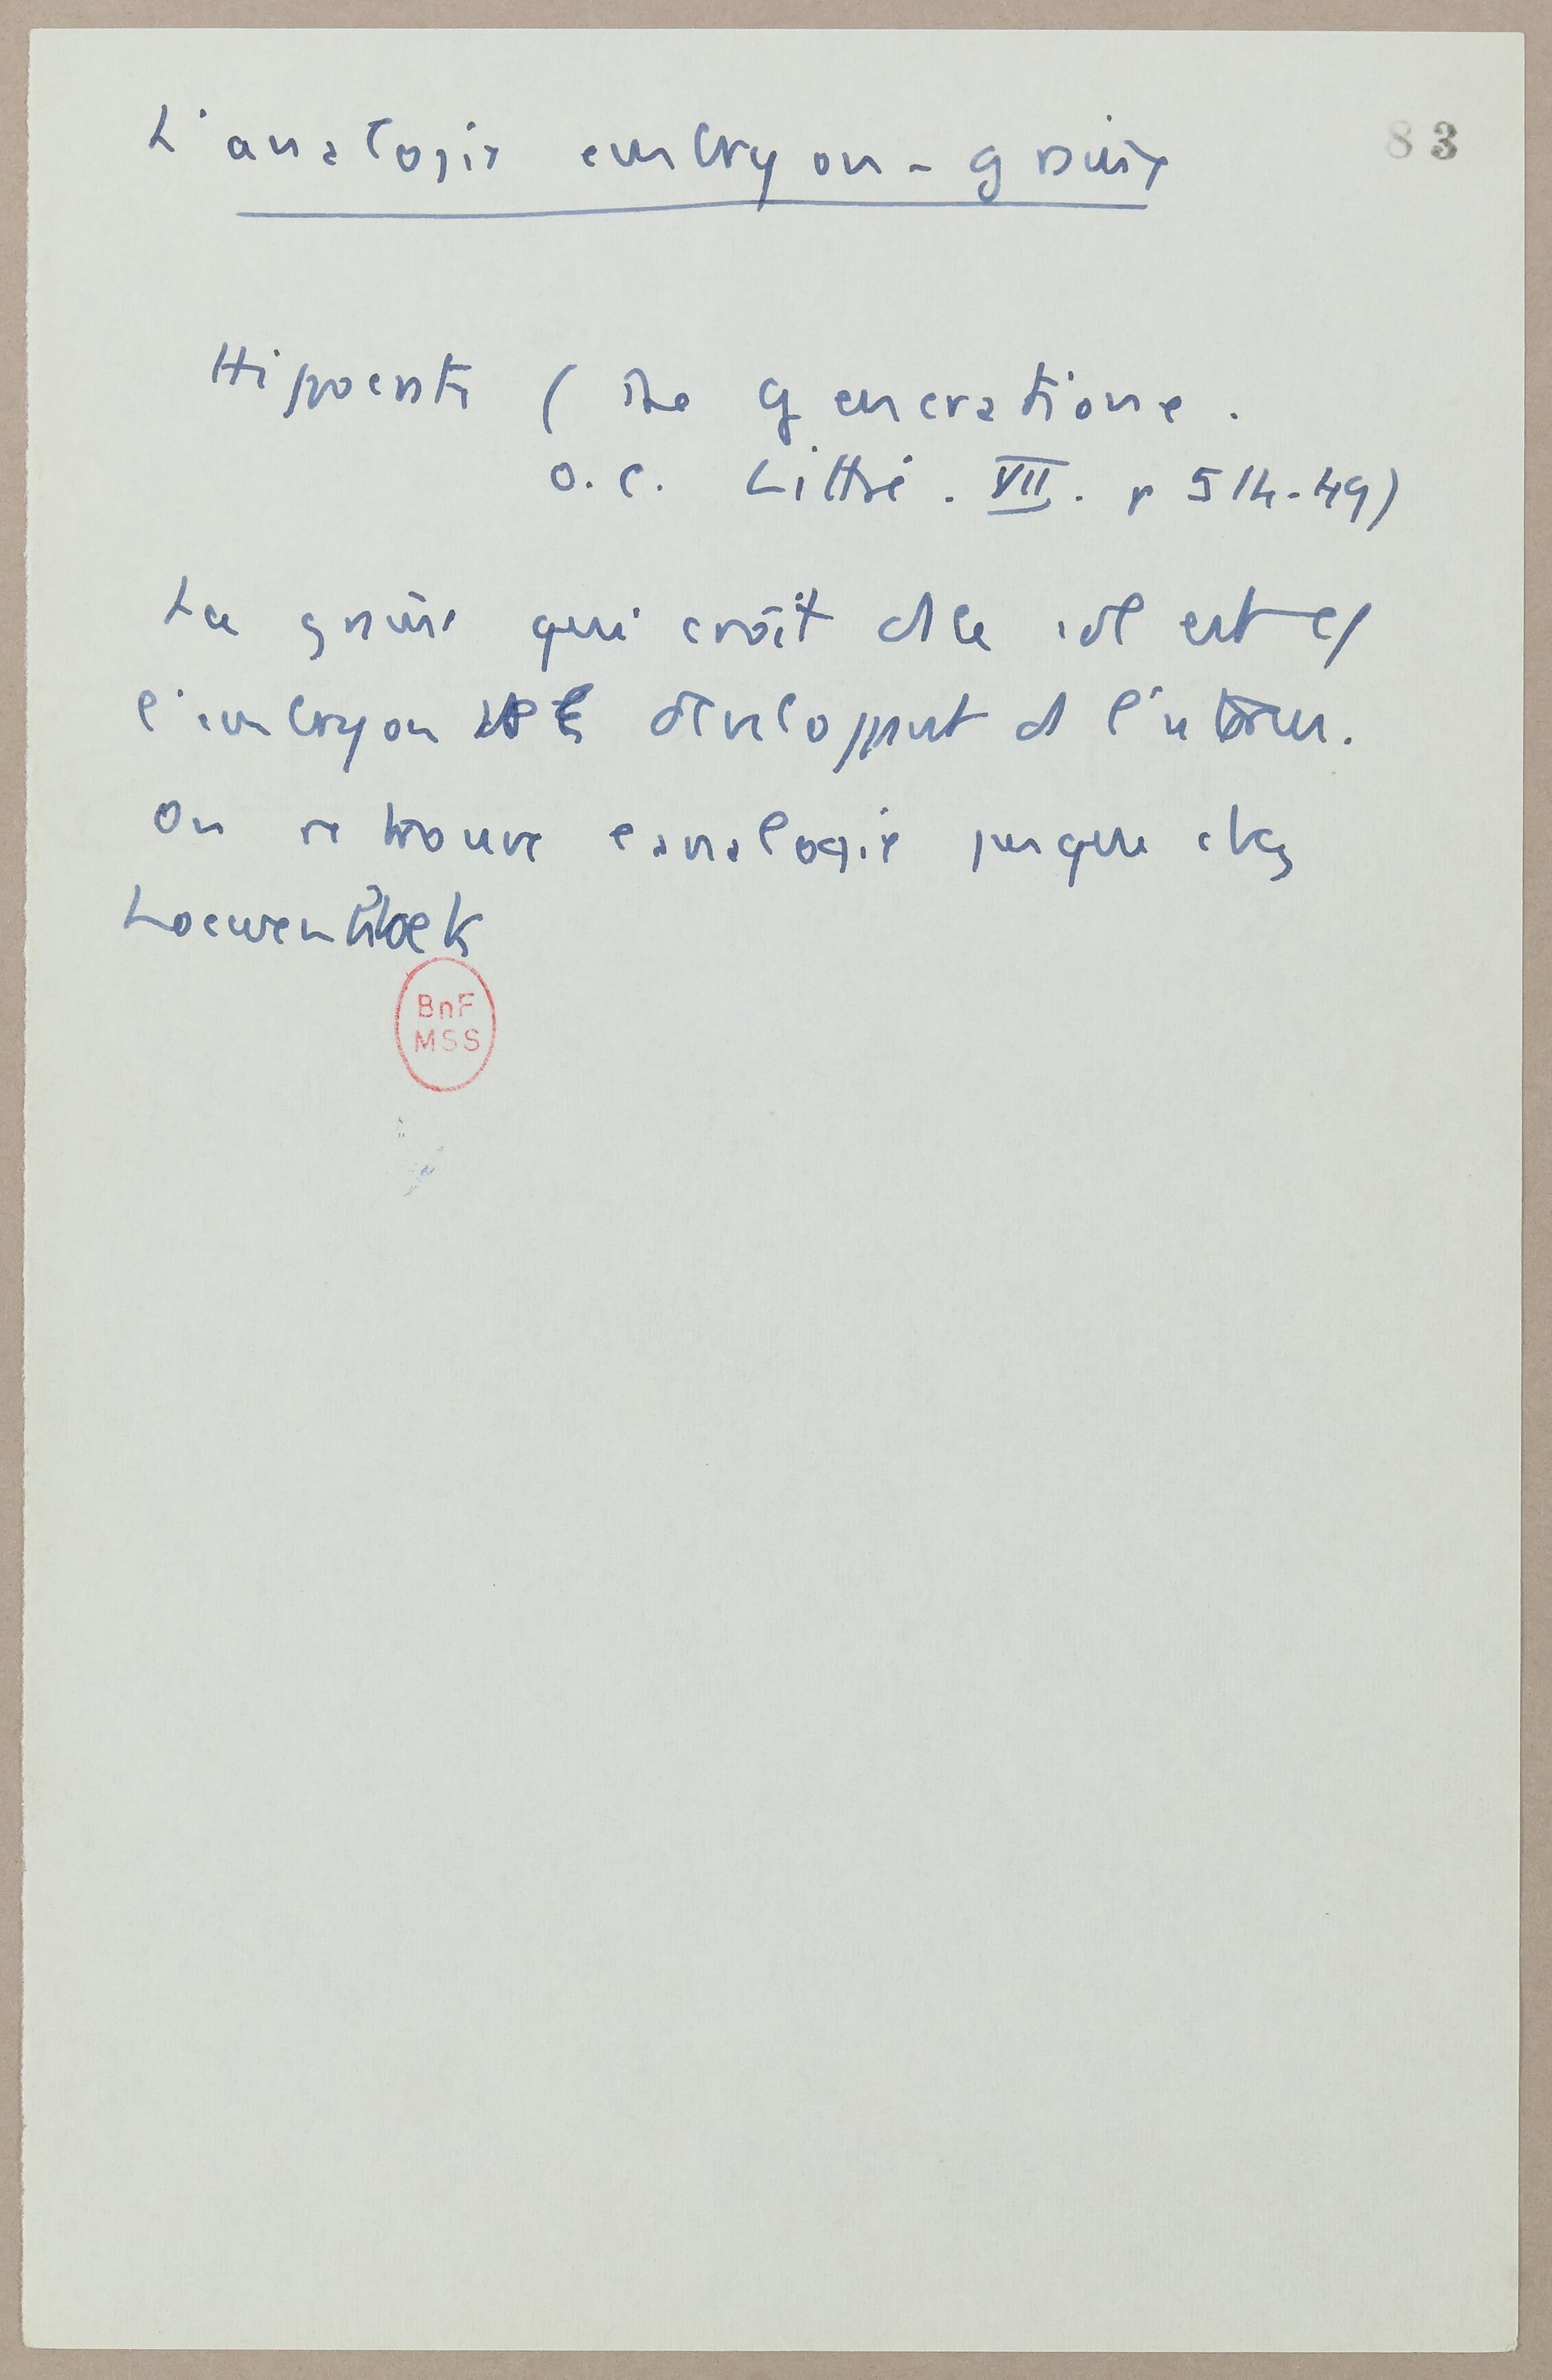 L'analogie embryon - graine
83
Hippocrate (De Generatione.
O.C. Littré. VII. p 514-49)
La graine qui croît ds le sol est cf
l'embryon développnt ds l'utérus.
On retrouve l'analogie jusque chez
Loewenhoek
BnF
MSS